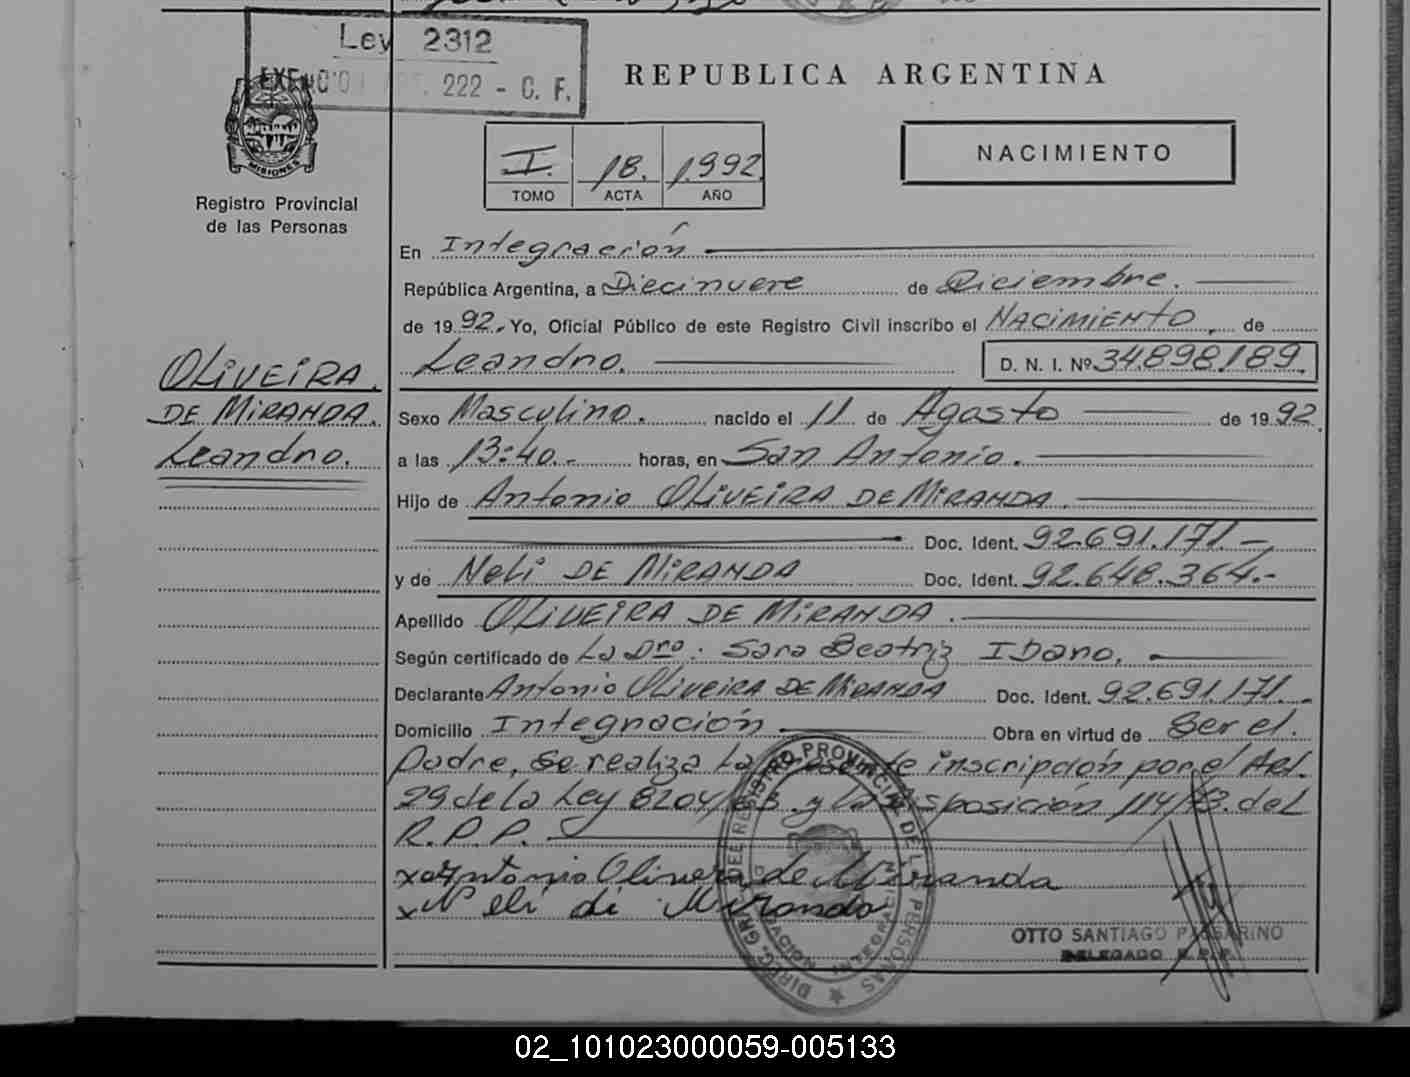 Ley 2312
222 - C. F.
REPUBLICA ARGENTINA
MISIONES
Registro Provincial
de las Personas
I. 18. 1.992.
TOMO ACTA AÑO
NACIMIENTO
En Integración
República Argentina, a Diecinueve de Diciembre.
de 1992. Yo, Oficial Público de este Registro Civil inscribo el NACIMIENTO, de
Leandro. D. N. I. Nº 34.898.189.
OLIVEIRA
DE MIRANDA.
Leandro.
Sexo Masculino. nacido el 11 de Agosto de 1992.
a las 13:40.- horas, en San Antonio.
Hijo de Antonio OLIVEIRA DE MIRANDA.
Doc. Ident. 92.691.171.-
y de Neli DE MIRANDA Doc. Ident. 92.648.364.-
Apellido OLIVEIRA DE MIRANDA.
Según certificado de La Dra. Sara Beatriz
Declarante Antonio OLIVEIRA DE MIRANDA Doc. Ident. 92.691.171.-
Domicilio Integración Obra en virtud de Ser el.
Padre, Se realiza La inscripción por el Art.
29 de la Ley 8204/ y la Disposición 114/ del
R.P.P.
x Antonio Olivera de Miranda
x Neli di Miranda
DIREC. GRAL. DEL REGISTRO PROVINCIAL DE LAS PERSONAS
OTTO SANTIAGO PASSARINO
DELEGADO R.P.P.
02_101023000059-005133